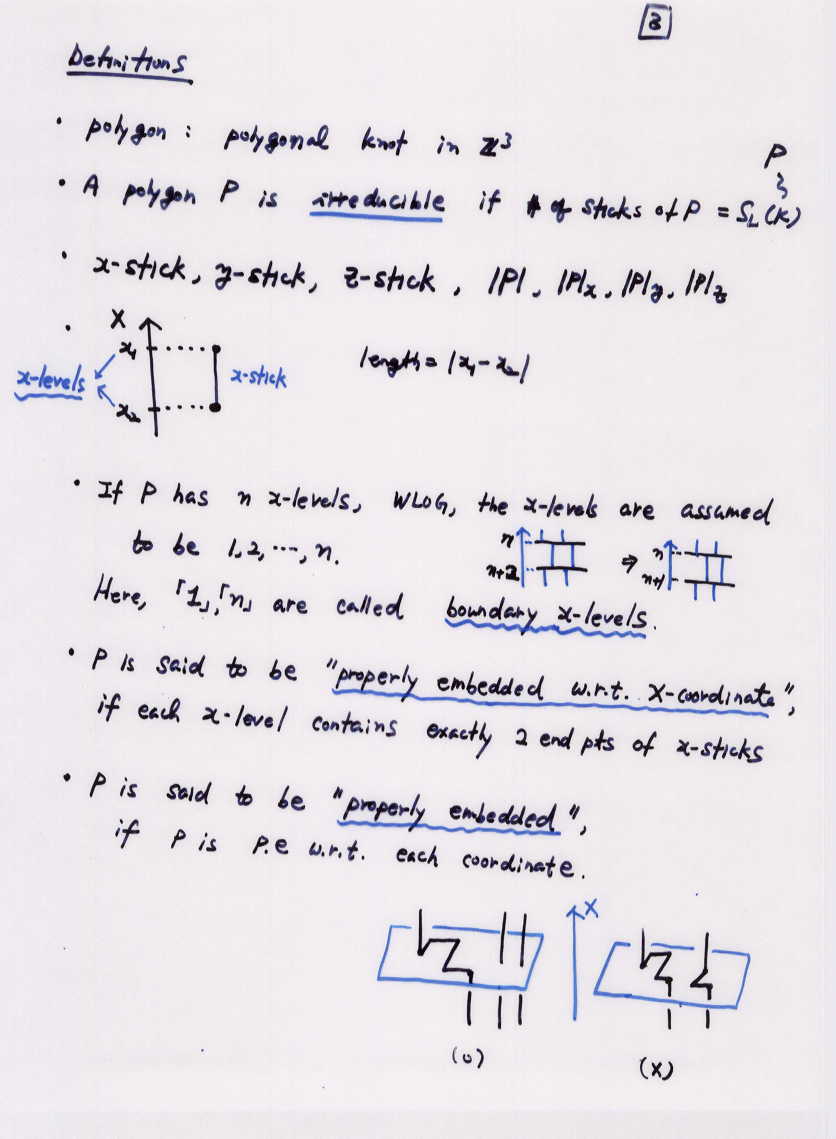 3
Definitions
• polygon : polygonal knot in ℤ³
P
• A polygon P is irreducible if # of sticks of P = S_L(K)
• x-stick, y-stick, z-stick, |P|, |P|_x, |P|_y, |P|_z
• X
x₁
length = |x₁ - x₂|
x-levels
x-stick
x₂
• If P has n x-levels, WLOG, the x-levels are assumed
to be 1, 2, ⋯, n.
n n+2 ⇒ n n+1
Here, 「1」,「n」 are called boundary x-levels.
• P is said to be "properly embedded w.r.t. X-coordinate",
if each x-level contains exactly 2 end pts of x-sticks
• P is said to be "properly embedded",
if P is p.e w.r.t. each coordinate.
X
(O) (X)